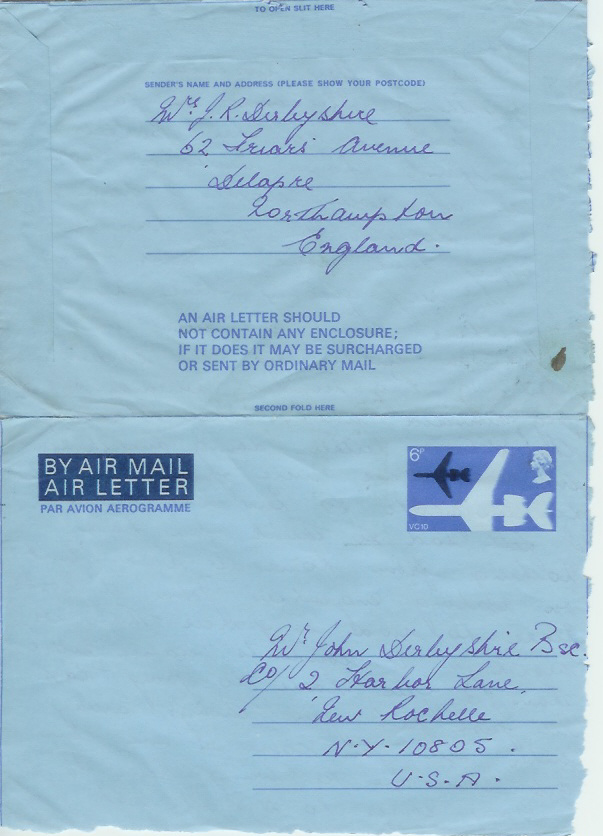 TO OPEN SLIT HERE
SENDER'S NAME AND ADDRESS (PLEASE SHOW YOUR POSTCODE)
Mrs J. R. Derbyshire
62 Friars' Avenue
Delapre
Northampton
England.
AN AIR LETTER SHOULD
NOT CONTAIN ANY ENCLOSURE;
IF IT DOES IT MAY BE SURCHARGED
OR SENT BY ORDINARY MAIL
SECOND FOLD HERE
BY AIR MAIL
AIR LETTER
PAR AVION AEROGRAMME
6P
VC10
Mr John Derbyshire Bsc.
Co/ 2 Harbor Lane,
New Rochelle
N.Y. 10805.
U.S.A.